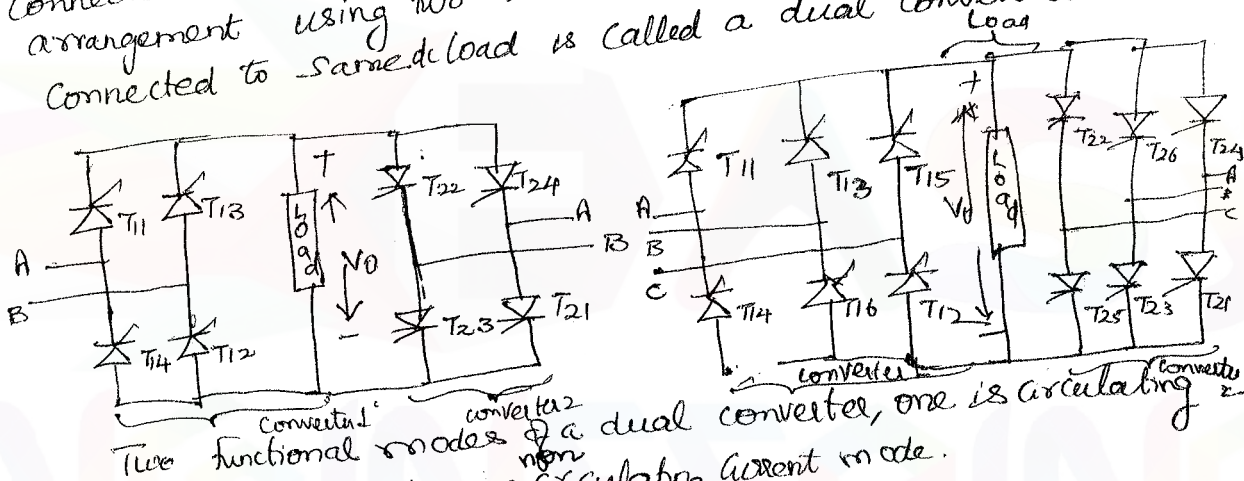 arrangement using two
Connected to same dc load is called a dual
Load
T11
T13
+
Load
Vo
-
T22
T24
A
B
A
B
T14
T12
T23
T21
Converter1
converter2
T11
T13
T15
+
Load
Vo
T22
T26
T24
A
B
C
A
C
T14
T16
T12
T25
T23
T21
converter
converter
2
Two functional modes of a dual converter, one is circulating
non
circulating current mode.